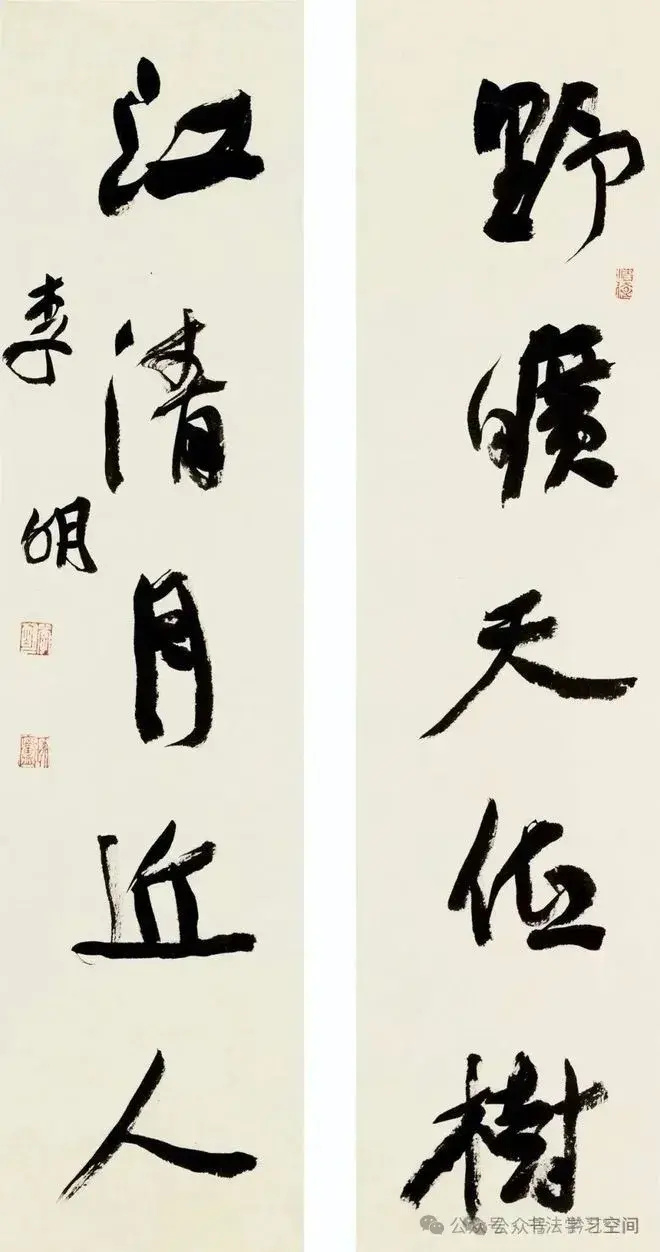 野曠天低樹
江清月近人
李明
公众号
公众书法学习空间